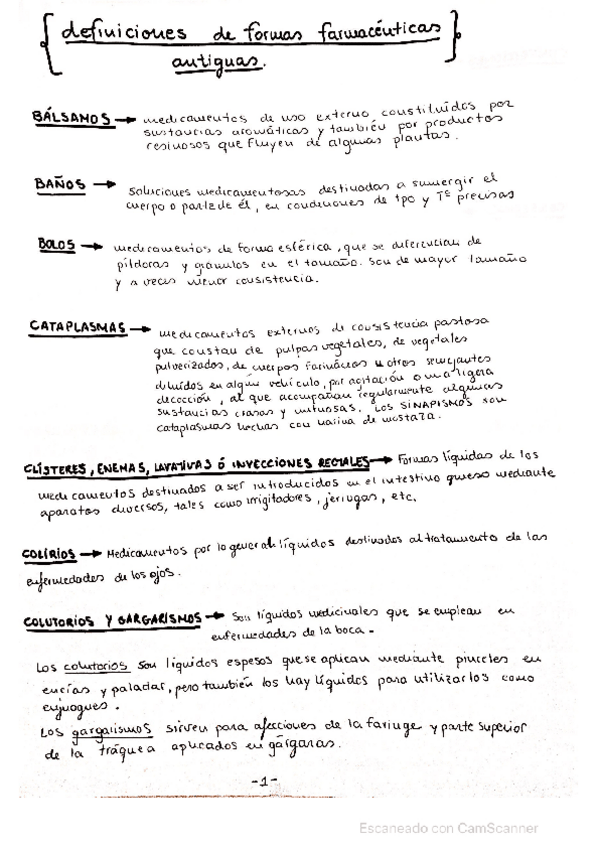 definiciones de formas farmacéuticas
antiguas.
BÁLSAMOS → medicamentos de uso externo constituídos por
sustancias aromáticas y también por productos
resinosos que fluyen de algunas plantas.
BAÑOS → Soluciones medicamentosas destinadas a sumergir el
cuerpo o parte de él, en condiciones de tpo y Tª precisas
BOLOS → medicamentos de forma esférica, que se diferencian de
píldoras y gránulos en el tamaño. Son de mayor tamaño
y a veces menor consistencia.
CATAPLASMAS → medicamentos externos de consistencia pastosa
que constan de pulpas vegetales, de vegetales
pulverizados, de cuerpos farináceos u otros semejantes
diluídos en algún vehículo, por agitación o una ligera
decocción, al que acompañan regularmente algunas
sustancias crasas y untuosas. Los SINAPISMOS son
cataplasmas hechas con harina de mostaza.
CLÍSTERES, ENEMAS, LAVATIVAS Ó INYECCIONES RECTALES → Formas líquidas de los
medicamentos destinados a ser introducidos en el intestino grueso mediante
aparatos diversos, tales como irrigitadores, jeringas, etc.
COLIRIOS → Medicamentos por lo general líquidos destinados al tratamiento de las
enfermedades de los ojos.
COLUTORIOS Y GARGARISMOS → Son líquidos medicinales que se emplean en
enfermedades de la boca.
Los colutorios son líquidos espesos que se aplican mediante pinceles en
encías y paladar, pero también los hay líquidos para utilizarlos como
enjuagues.
Los gargarismos sirven para afecciones de la faringe y parte superior
de la tráquea aplicados en gárgaras.
-1-
Escaneado con CamScanner